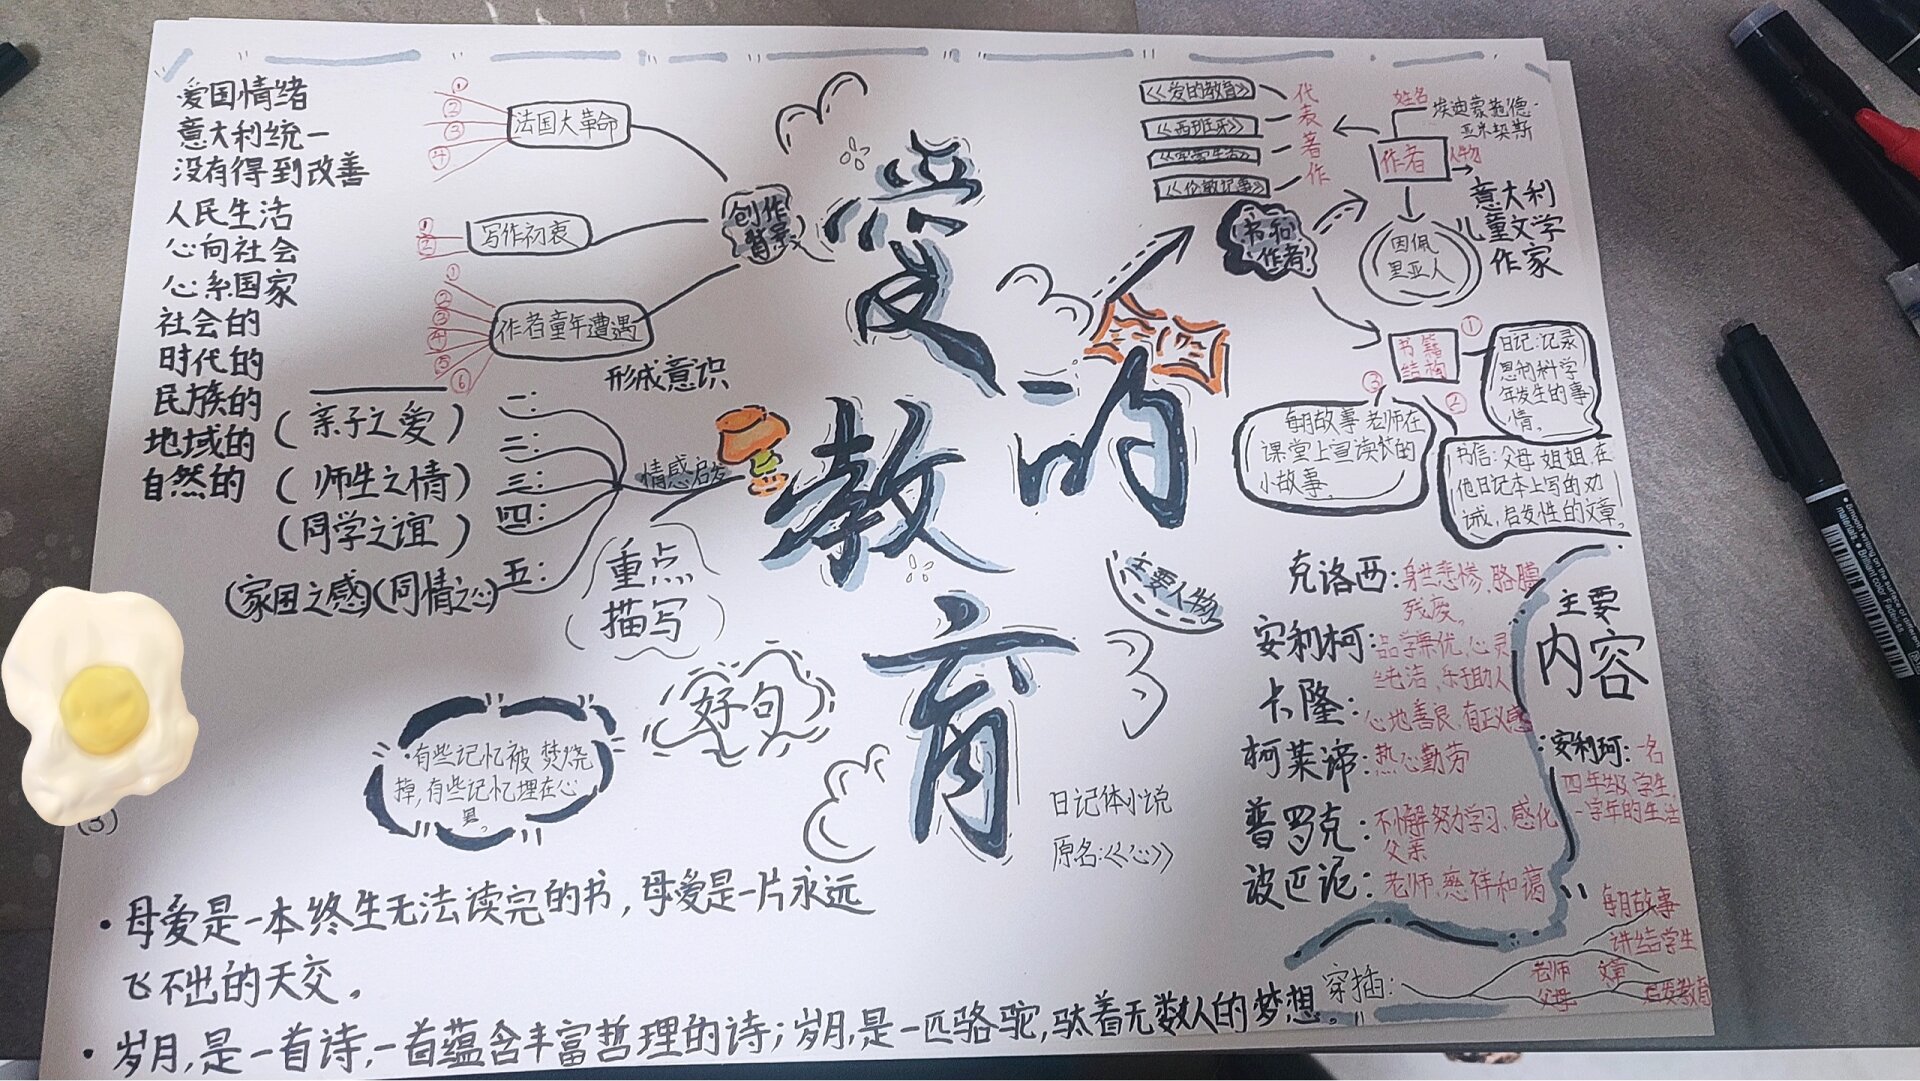 爱的教育
爱国情绪
意大利统一
没有得到改善
人民生活
心向社会
心系国家
社会的
时代的
民族的
地域的
自然的
创作
背景
法国大革命
①
②
③
④
写作初衷
①
②
作者童年遭遇
①
②
③
④
⑤
⑥
形成意识
情感启发
一:
二:
三:
四:
五:
(亲子之爱)
(师生之情)
(同学之谊)
(家国之感)(同情之心)
重点
描写
好句
有些记忆被焚烧
掉,有些记忆埋在心
里。
(3)
·母爱是一本终生无法读完的书,母爱是一片永远
飞不出的天交。
·岁月,是一首诗,一首蕴含丰富哲理的诗;岁月,是一匹骆驼,驮着无数人的梦想。
日记体小说
原名:《心》
书和
作者
代表著作
《爱的教育》
《西班牙》
《伦敦记事》
作者
姓名
埃迪蒙托德·
亚米契斯
人物
意大利
儿童文学
作家
因佩
里亚人
书籍
结构
①
日记:记录
恩利科学
年发生的事
情。
②
书信:父母 姐姐,在
他日记本上写的劝
诫,启发性的文章。
③
每月故事 老师在
课堂上宣读的
小故事。
主要人物
克洛西:身世悲惨,胳膊
残废。
安利柯:品学兼优,心灵
纯洁、乐于助人
卡隆:心地善良,有正义感
柯莱谛:热心勤劳
普罗克:不懈努力学习、感化
父亲
波匹泥:老师、慈祥和蔼
主要
内容
安利珂:一名
四年级学生,
一学年的生活
穿插:
每月故事
讲给学生
老师
父母
文章
启发教育